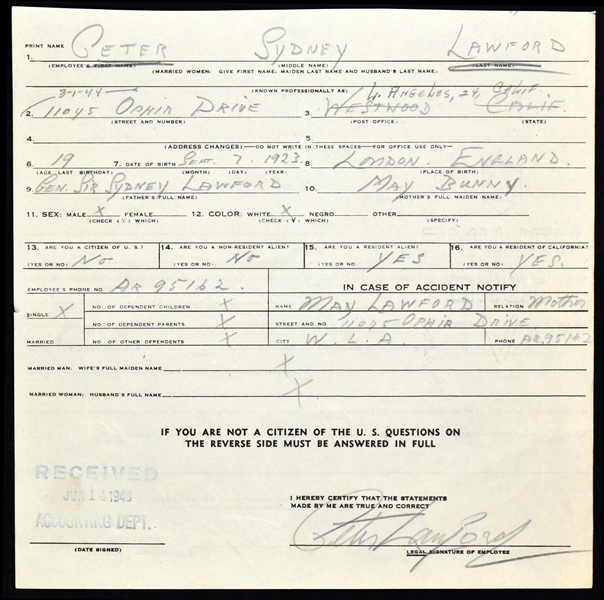 PRINT NAME PETER SYDNEY LAWFORD
1. (EMPLOYEE'S FIRST NAME) (MIDDLE NAME) (LAST NAME)
(MARRIED WOMEN: GIVE FIRST NAME; MAIDEN LAST NAME AND HUSBAND'S LAST NAME)
3-1-44 (KNOWN PROFESSIONALLY AS) W. ANGELES, 24, CALIF.
2. 11045 OPHIR DRIVE 3. WESTWOOD CALIF.
(STREET AND NUMBER) (POST OFFICE) (STATE)
4. 5.
(ADDRESS CHANGES) - DO NOT WRITE IN THESE SPACES - FOR OFFICE USE ONLY -
6. 19 7. DATE OF BIRTH SEP. 7. 1923 8. LONDON. ENGLAND.
(AGE LAST BIRTHDAY) (MONTH) (DAY) (YEAR) (PLACE OF BIRTH)
9. GEN. SIR SYDNEY LAWFORD 10. MAY BUNNY.
(FATHER'S FULL NAME) (MOTHER'S FULL MAIDEN NAME)
11. SEX: MALE X FEMALE 12. COLOR: WHITE X NEGRO OTHER
(CHECK (√) WHICH) (CHECK (√) WHICH) (SPECIFY)
13. ARE YOU A CITIZEN OF U. S.? 14. ARE YOU A NON-RESIDENT ALIEN? 15. ARE YOU A RESIDENT ALIEN? 16. ARE YOU A RESIDENT OF CALIFORNIA?
(YES OR NO) NO (YES OR NO) NO (YES OR NO) YES (YES OR NO) YES.
EMPLOYEE'S PHONE NO. AR 95162 IN CASE OF ACCIDENT NOTIFY
SINGLE X NO. OF DEPENDENT CHILDREN X NAME MAY LAWFORD RELATION Mother
NO. OF DEPENDENT PARENTS X STREET AND NO. 11045 OPHIR DRIVE
MARRIED NO. OF OTHER DEPENDENTS X CITY W. L. A. PHONE AR.95162
MARRIED MAN: WIFE'S FULL MAIDEN NAME X
MARRIED WOMAN: HUSBAND'S FULL NAME X
IF YOU ARE NOT A CITIZEN OF THE U. S. QUESTIONS ON
THE REVERSE SIDE MUST BE ANSWERED IN FULL
RECEIVED
JUN 14 1943
ACCOUNTING DEPT.
I HEREBY CERTIFY THAT THE STATEMENTS
MADE BY ME ARE TRUE AND CORRECT
Peter Lawford
(DATE SIGNED) LEGAL SIGNATURE OF EMPLOYEE